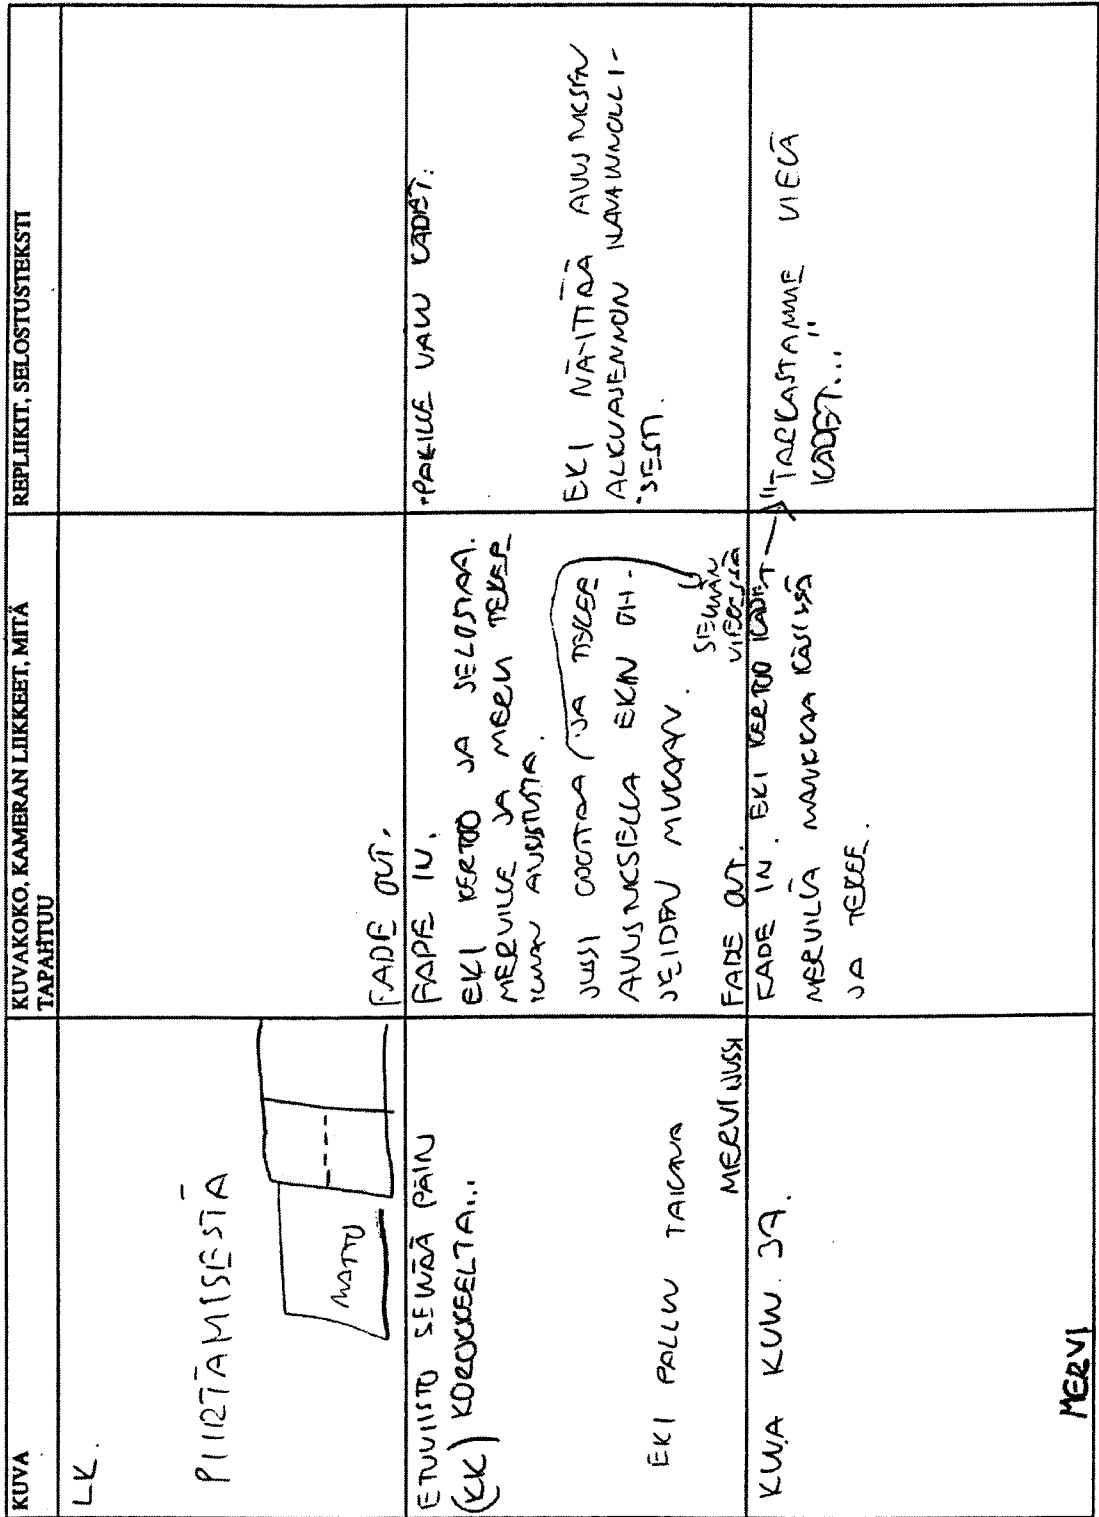 KUVA
KUVAKOKO, KAMERAN LIIKKEET, MITÄ
TAPAHTUU
REPLIIKIT, SELOSTUSTEKSTI
LK.
PIIRTÄMISESTÄ
MATTO
FADE OUT.
ETUVIISTO SEINÄÄ PÄIN
(KK) KOROKKEELTA...
EKI PALLIN TAKANA
MERVI JUSSI
FADE IN.
EKI KERTOO JA SELOSTAA.
MERVILLE JA MERVI TEKEE
ILMAN AVUSTUSTA.
JUSSI ODOTTAA / JA TEKEE
AVUSTUKSELLA EKIN OH-
JEIDEN MUKAAN.
SEINÄN
VIERESSÄ
FADE OUT.
"PAKILLE VAIN KÄDET.
EKI NÄYTTÄÄ AVUSTUKSEN
ALKUASENNON HAVAINNOLLI-
SESTI.
KUVA KUIN 37.
MERVI
FADE IN. EKI KERTOO KÄDET
MERVILLÄ KÄSISSÄ
JA TEKEE.
"TARKASTAMME VIELÄ
KÄDET..."